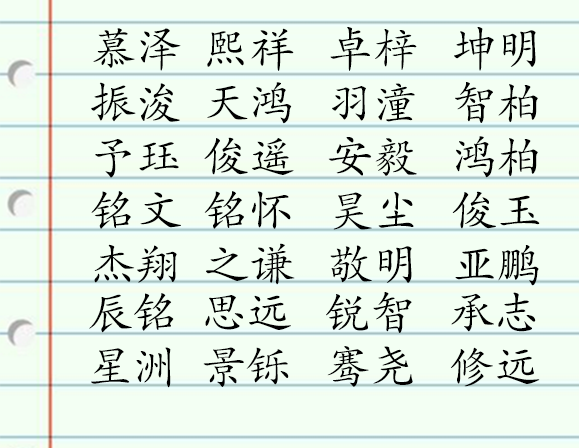 慕泽 熙祥 卓梓 坤明
振浚 天鸿 羽潼 智柏
予珏 俊遥 安毅 鸿柏
铭文 铭怀 昊尘 俊玉
杰翔 之谦 敬明 亚鹏
辰铭 思远 锐智 承志
星洲 景铄 骞尧 修远